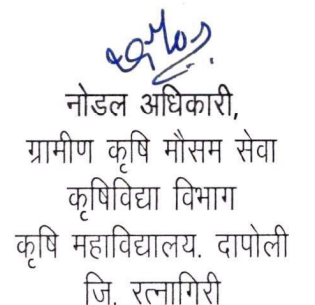 नोडल अधिकारी,
ग्रामीण कृषि मौसम सेवा
कृषिविद्या विभाग
कृषि महाविद्यालय. दापोली
जि. रत्नागिरी